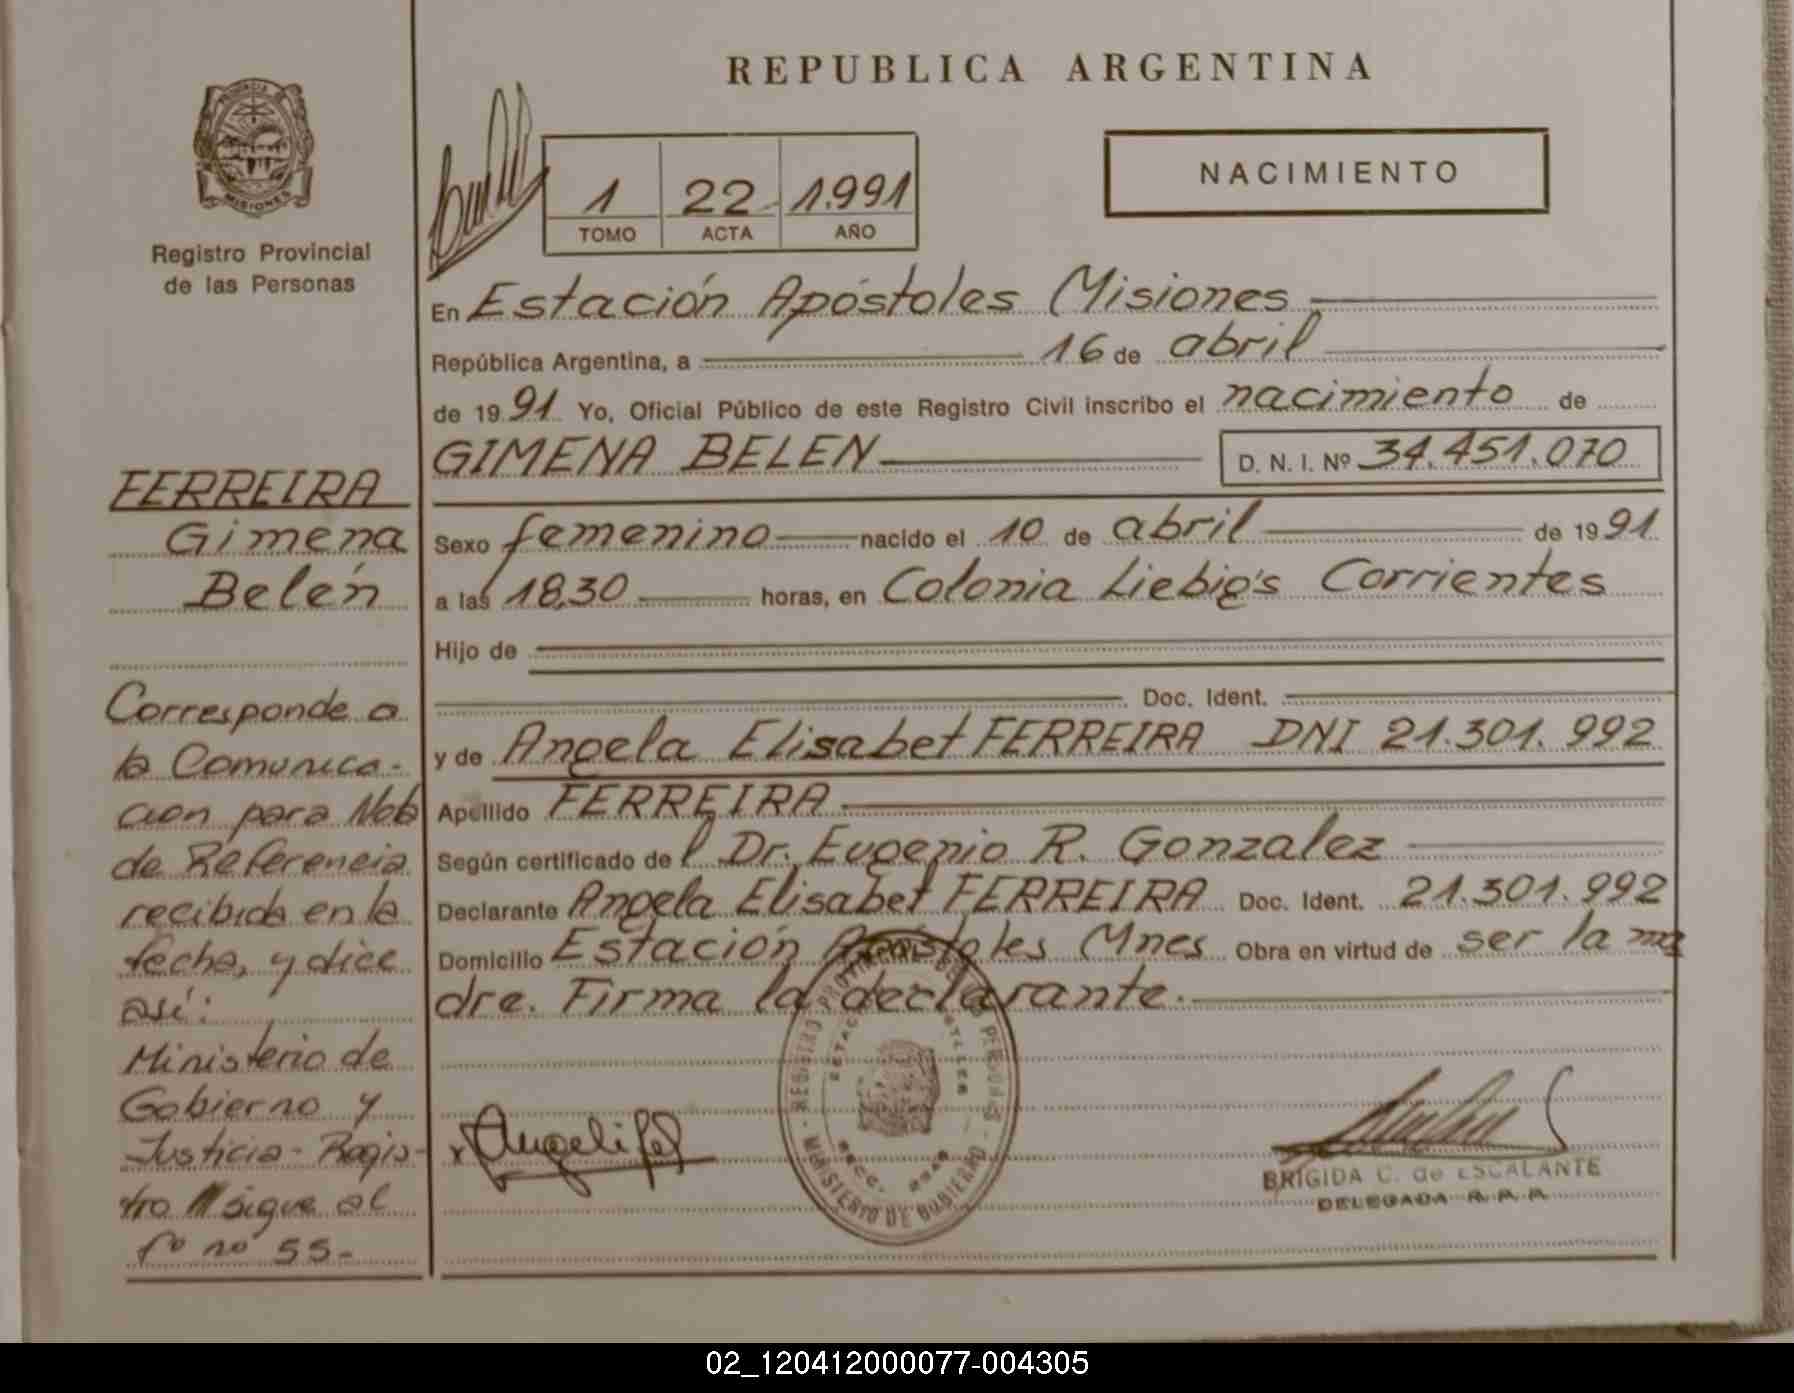 REPUBLICA ARGENTINA
PROVINCIA DE
MISIONES
Registro Provincial
de las Personas
1 22 1.991
TOMO ACTA AÑO
NACIMIENTO
En Estación Apóstoles Misiones
República Argentina, a 16 de abril
de 1991 Yo, Oficial Público de este Registro Civil inscribo el nacimiento de
GIMENA BELEN D. N. I. Nº 34.451.070
Sexo femenino nacido el 10 de abril de 1991
a las 18,30 horas, en Colonia Liebig's Corrientes
Hijo de
Doc. Ident.
y de Angela Elisabet FERREIRA DNI 21.301.992
Apellido FERREIRA
Según certificado del Dr. Eugenio R. Gonzalez
Declarante Angela Elisabet FERREIRA Doc. Ident. 21.301.992
Domicilio Estación Apóstoles Mnes Obra en virtud de ser la ma
dre. Firma la declarante.
FERREIRA
Gimena
Belén
Corresponde a
la Comunica-
cion para Nota
de Referencia
recibida en la
fecha, y dice
así:
Ministerio de
Gobierno y
Justicia - Regis-
tro sigue al
fº nº 55-
REGISTRO PROVINCIAL DE LAS PERSONAS - MINISTERIO DE GOBIERNO -
BRIGIDA C. de ESCALANTE
DELEGADA R. P. P.
02_120412000077-004305